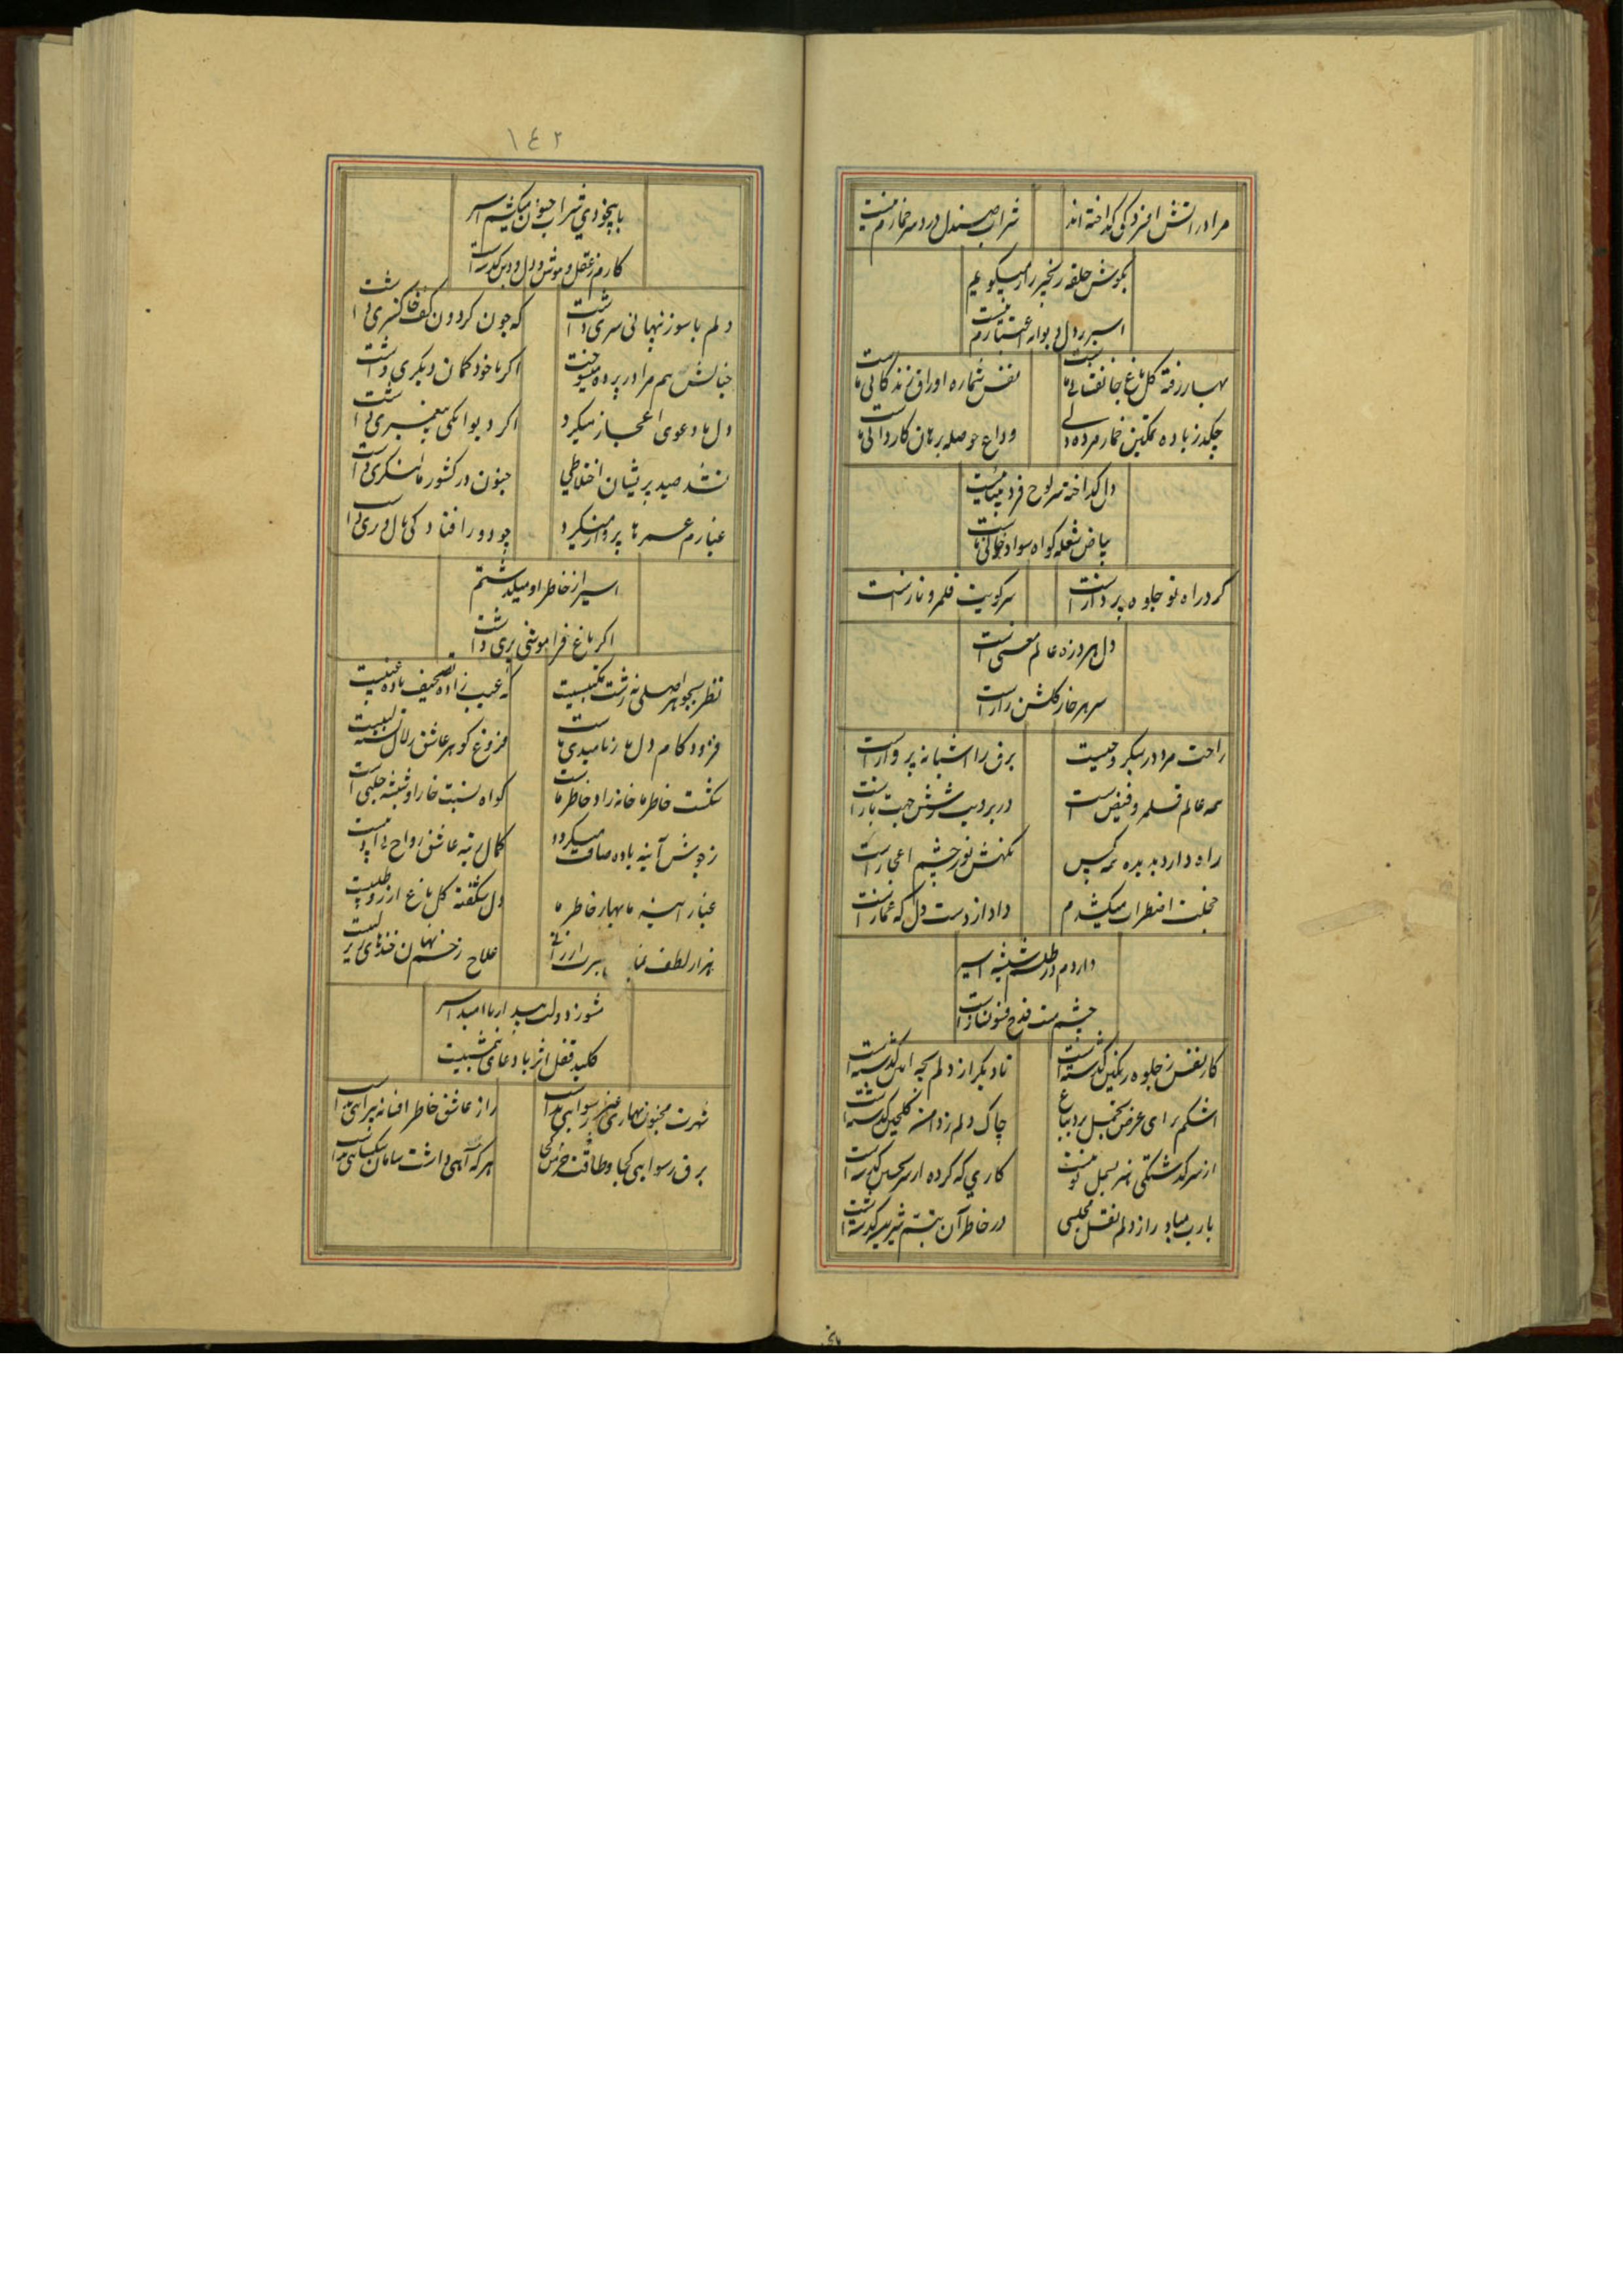 مرا در آتش افسردگی گداخته اند
شراب صندل دردسر خمارم نیست
بگوش حلقه زنجیر راز میگویم
اسیر دل دیوانه اعتبارم نیست
بهار رفته گل باغ جانفشانی ماست
نفس شماره اوراق زندگانی ماست
چکد ز باده تمکین خمار مرده دلی
وداع حوصله برهان کاردانی ماست
دل گداخته سر لوح فرد بیتابیست
بیاض شعله گواه سواد خوانی ماست
گرد راه تو جلوه پرداز است
سر کویت قلمرو ناز است
دل هر ذره عالم معنی است
سر هر خار گلشن راز است
راحت مرد در سبکروحیست
برق را آشیانه پرواز است
همه عالم قلمرو فیض است
در بر دیت شش جهت باز است
راه دارد بدیده همه کس
نگهش نور چشم اعجاز است
خجلت اضطراب میکشدم
داد از دست دل که غماز است
دارم در طلسم شیشه اسیر
چشم مست قدح فسونساز است
کار نفس ز جلوه رنگین گذشته است
تا دیگر از دلم بچه آیین گذشته است
اشکم برای عرض تجمل برد بباغ
چاک دلم ز دامن گلچین گذشته است
از سر گذشتگی هنر بسمل تو نیست
کاری که کرده از سر تحسین گذشته است
یارب مباد راز دلم نقل مجلسی
در خاطر آن تبسم شیرین گذشته است
۱٤۲
با بیخودی شراب جنون میکشم اسیر
کارم ز عقل و هوش و دل و دین گذشته است
دلم با سوز پنهانی سری داشت
که چون گردون کف خاکستری داشت
خیالش هم مرا در پرده میسوخت
اگر با خود گمان دیگری داشت
دل ما دعوی اعجاز میکرد
اگر دیوانگی پیغمبری داشت
نشد صید پریشان اختلاطی
جنون در کشور ما لشکری داشت
غبارم عمرها پرواز میکرد
چو دور افتاد کی بال و پری داشت
اسیر از خاطر او میگذشتم
اگر باغ فراموشی بری داشت
نظر بجوهر اصلی نه زشت
که عیب زاده تصحیف باده عنبیست
فزود کام دل ما ز ناامیدی ماست
فروغ گوهر عاشق زلال تشنه لبیست
شکست خاطر ما خانه زاد خاطر ماست
گواه نسبت خارا و شیشه حلبی است
ز جوش آینه باده صاف میگردد
کمال رتبه عاشق رواج بی ادبیست
غبار آینه ما بهار خاطر ما
دل شکفته گل باغ آرزو طلبیست
هزار لطف
علاج زخم نهان خنده‌های زیر لبیست
مشو ز دولت بیدار ناامید اسیر
کلید قفل اثر با دعای نیمشبیست
شهرت مجنون بهاری غیر رسوایی نداشت
راز عاشق خاطر افسانه پیرایی نداشت
برق رسوایی کجا و طاقت خرمن کجا
هر که آهی داشت سامان شکیبایی نداشت